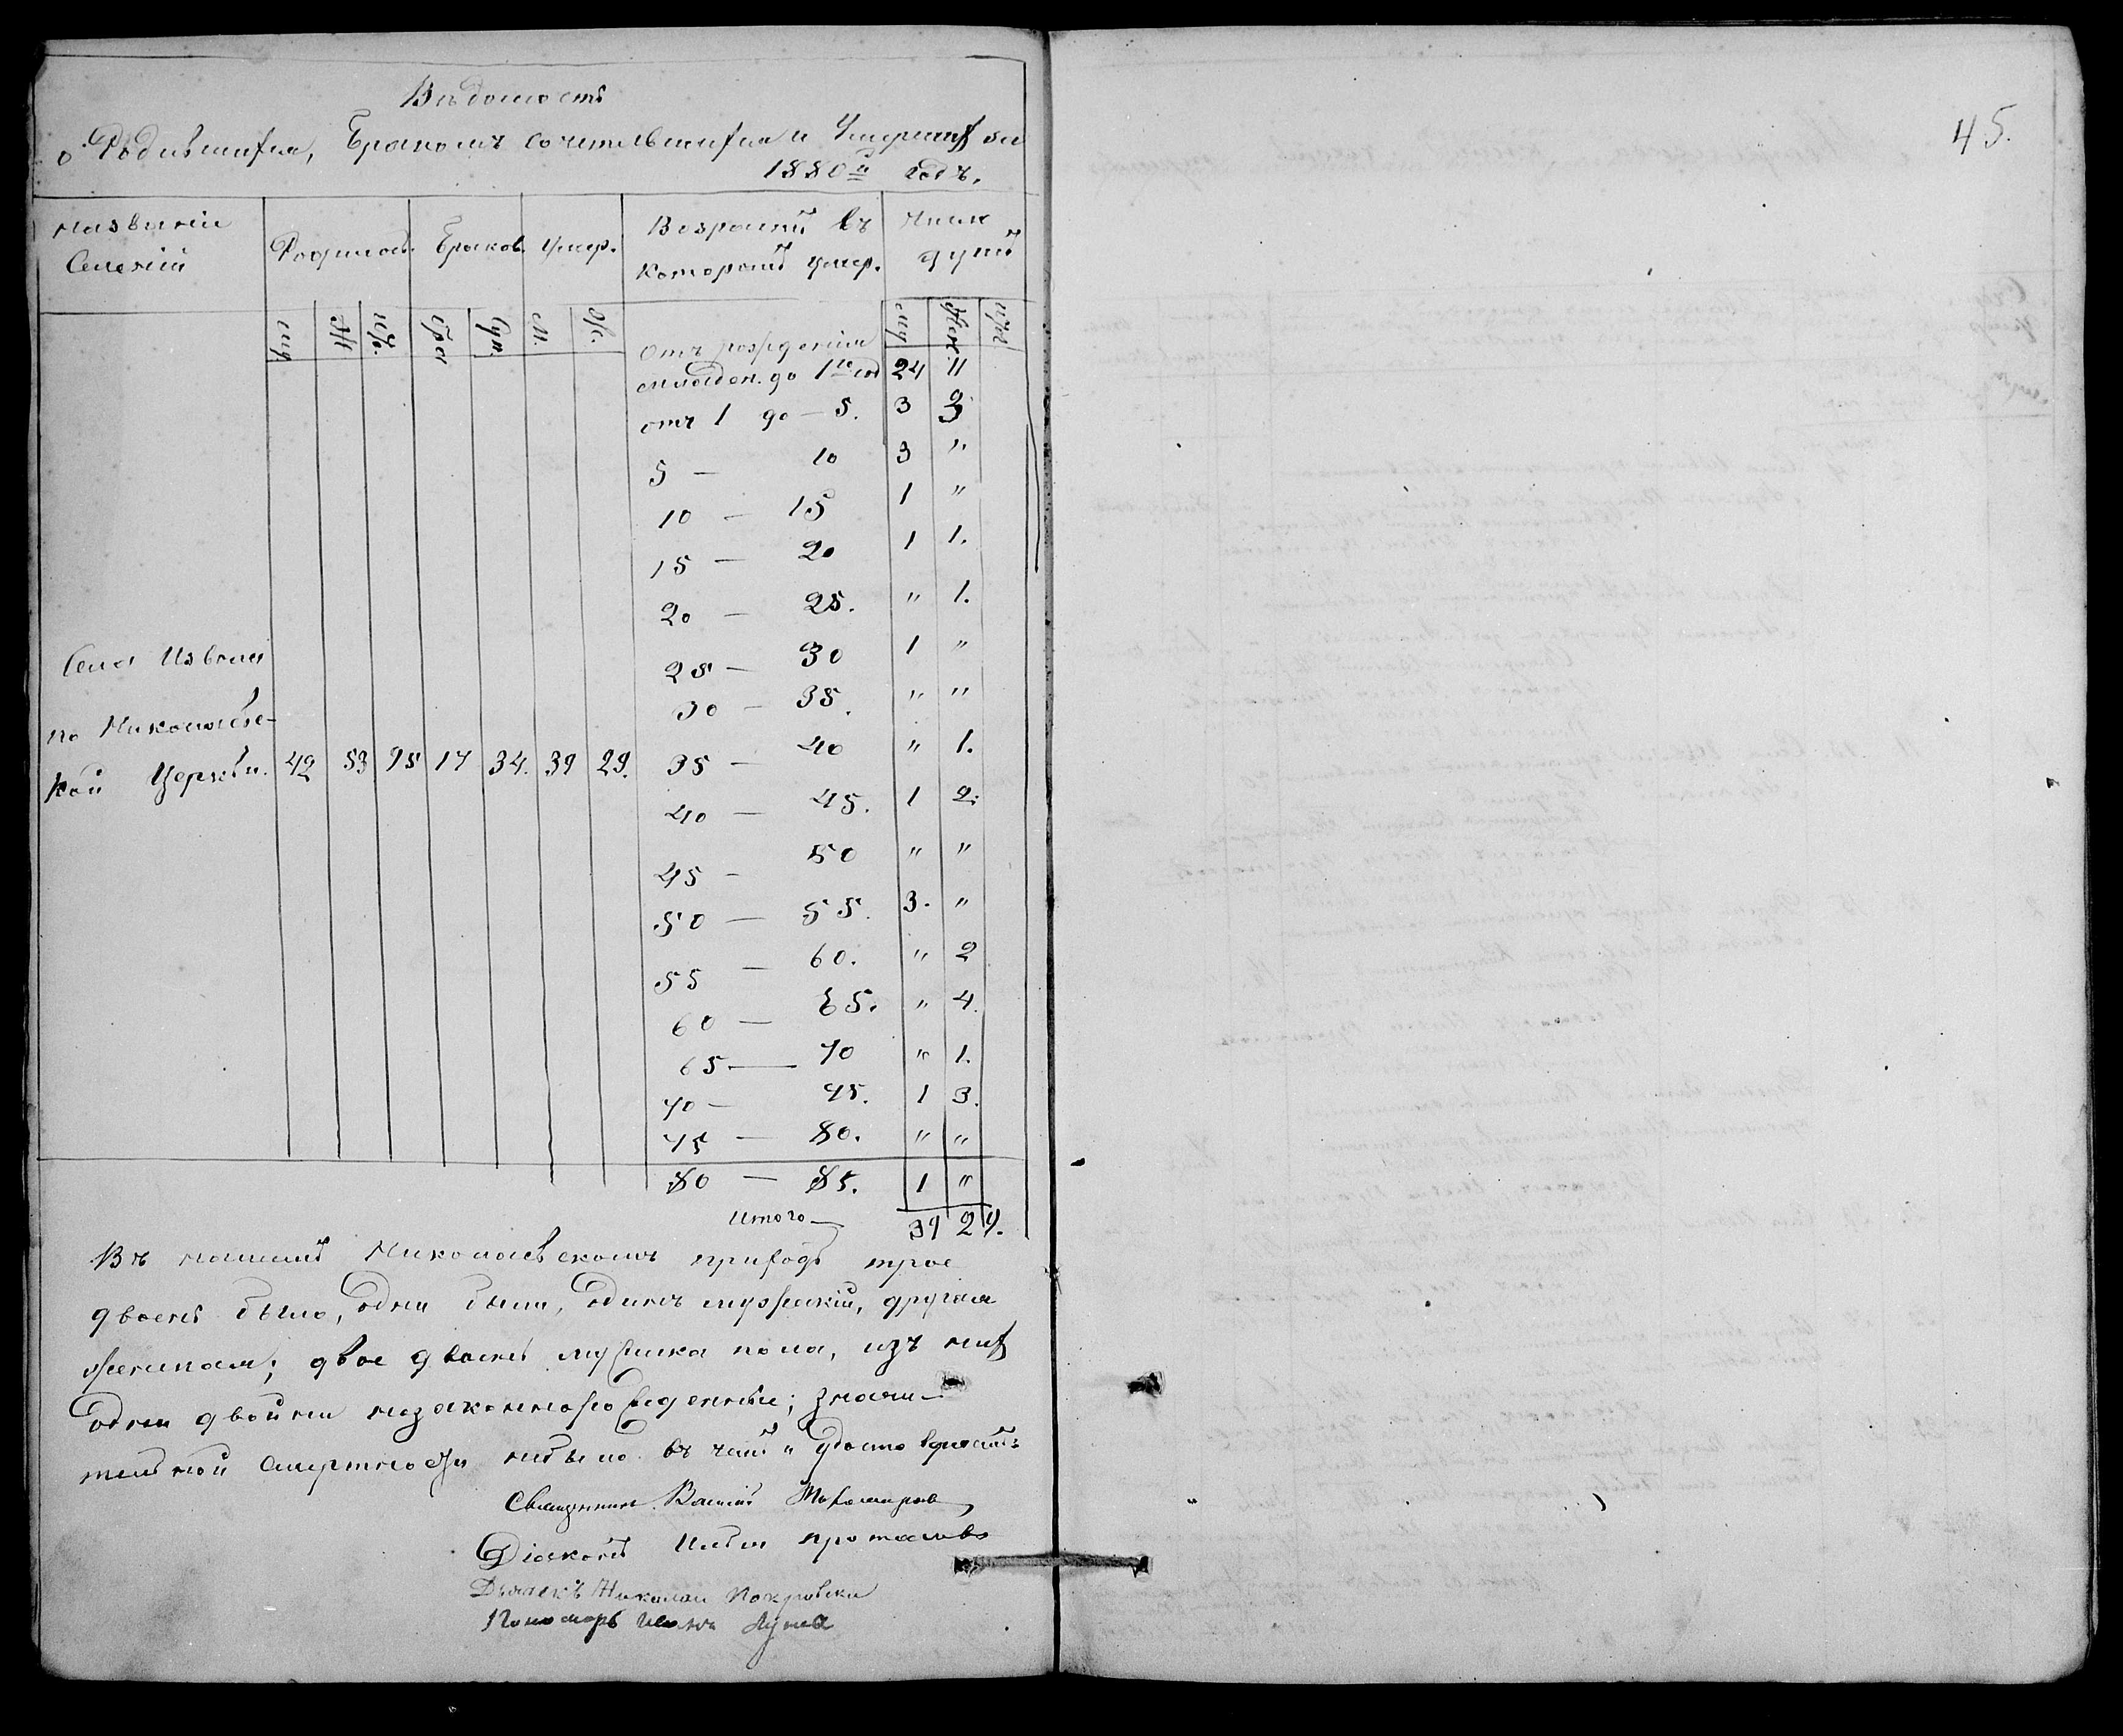 Вѣдомость
о Родившихся, Бракомъ сочетавшихся и Умершихъ за
1880й годъ.
Названіе Селеній | Родилось | Браков. | Умер. | Возрастъ въ которомъ умер. | Число душъ
муж | Ж | | бра | Суп. | М. | Ж. | муж | Жен
Отъ рожденія
младен. до 1го год 24 11
отъ 1 до — 5. 3 3
5 — 10 3 "
10 — 15 1 "
15 — 20 1 1.
20 — 25. " 1.
25 — 30 1 "
30 — 35. " "
Села Извали
по Николаевс-
кой Церкви. 42 53 95 17 34. 39 29.
35 — 40 " 1.
40 — 45. 1 2.
45 — 50 " "
50 — 55. 3. "
55 — 60. " 2
60 — 65. " 4.
65 — 70 " 1.
70 — 75. 1 3.
75 — 80. " "
80 — 85. 1 "
Итого — 39 29.
Въ нашемъ Николаевскомъ приходѣ трое
двоенъ было, одни были, одинъ мужскій, другая
женская; двое двоенъ мужска пола, изъ них
одни двойни незаконнорожденные; значи-
тельной смертности небыло въ чемъ и удостовѣряемъ
Священник Василій Тихомиров
Діаконъ Протасовъ
Дьячекъ Николай Покровски
Пономарь Иванъ
45.